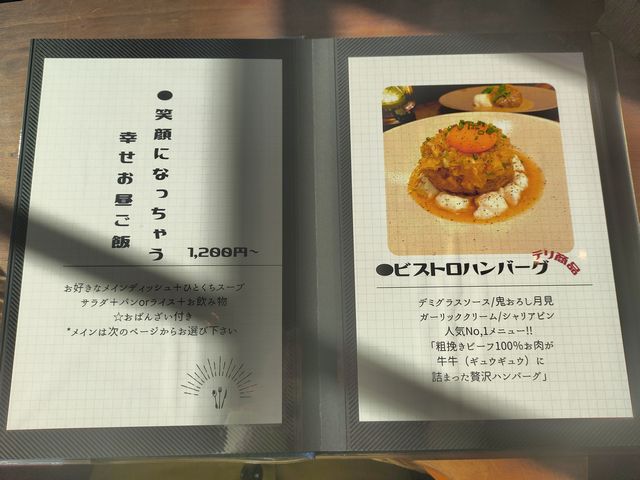 ●笑顔になっちゃう
幸せお昼ご飯
1,200円~
お好きなメインディッシュ＋ひとくちスープ
サラダ＋パンorライス＋お飲み物
☆おばんざい付き
*メインは次のページからお選び下さい
●ビストロハンバーグ
デリ商品
デミグラスソース/鬼おろし月見
ガーリッククリーム/シャリアピン
人気No,1メニュー!!
「粗挽きビーフ100%お肉が
牛牛（ギュウギュウ）に
詰まった贅沢ハンバーグ」